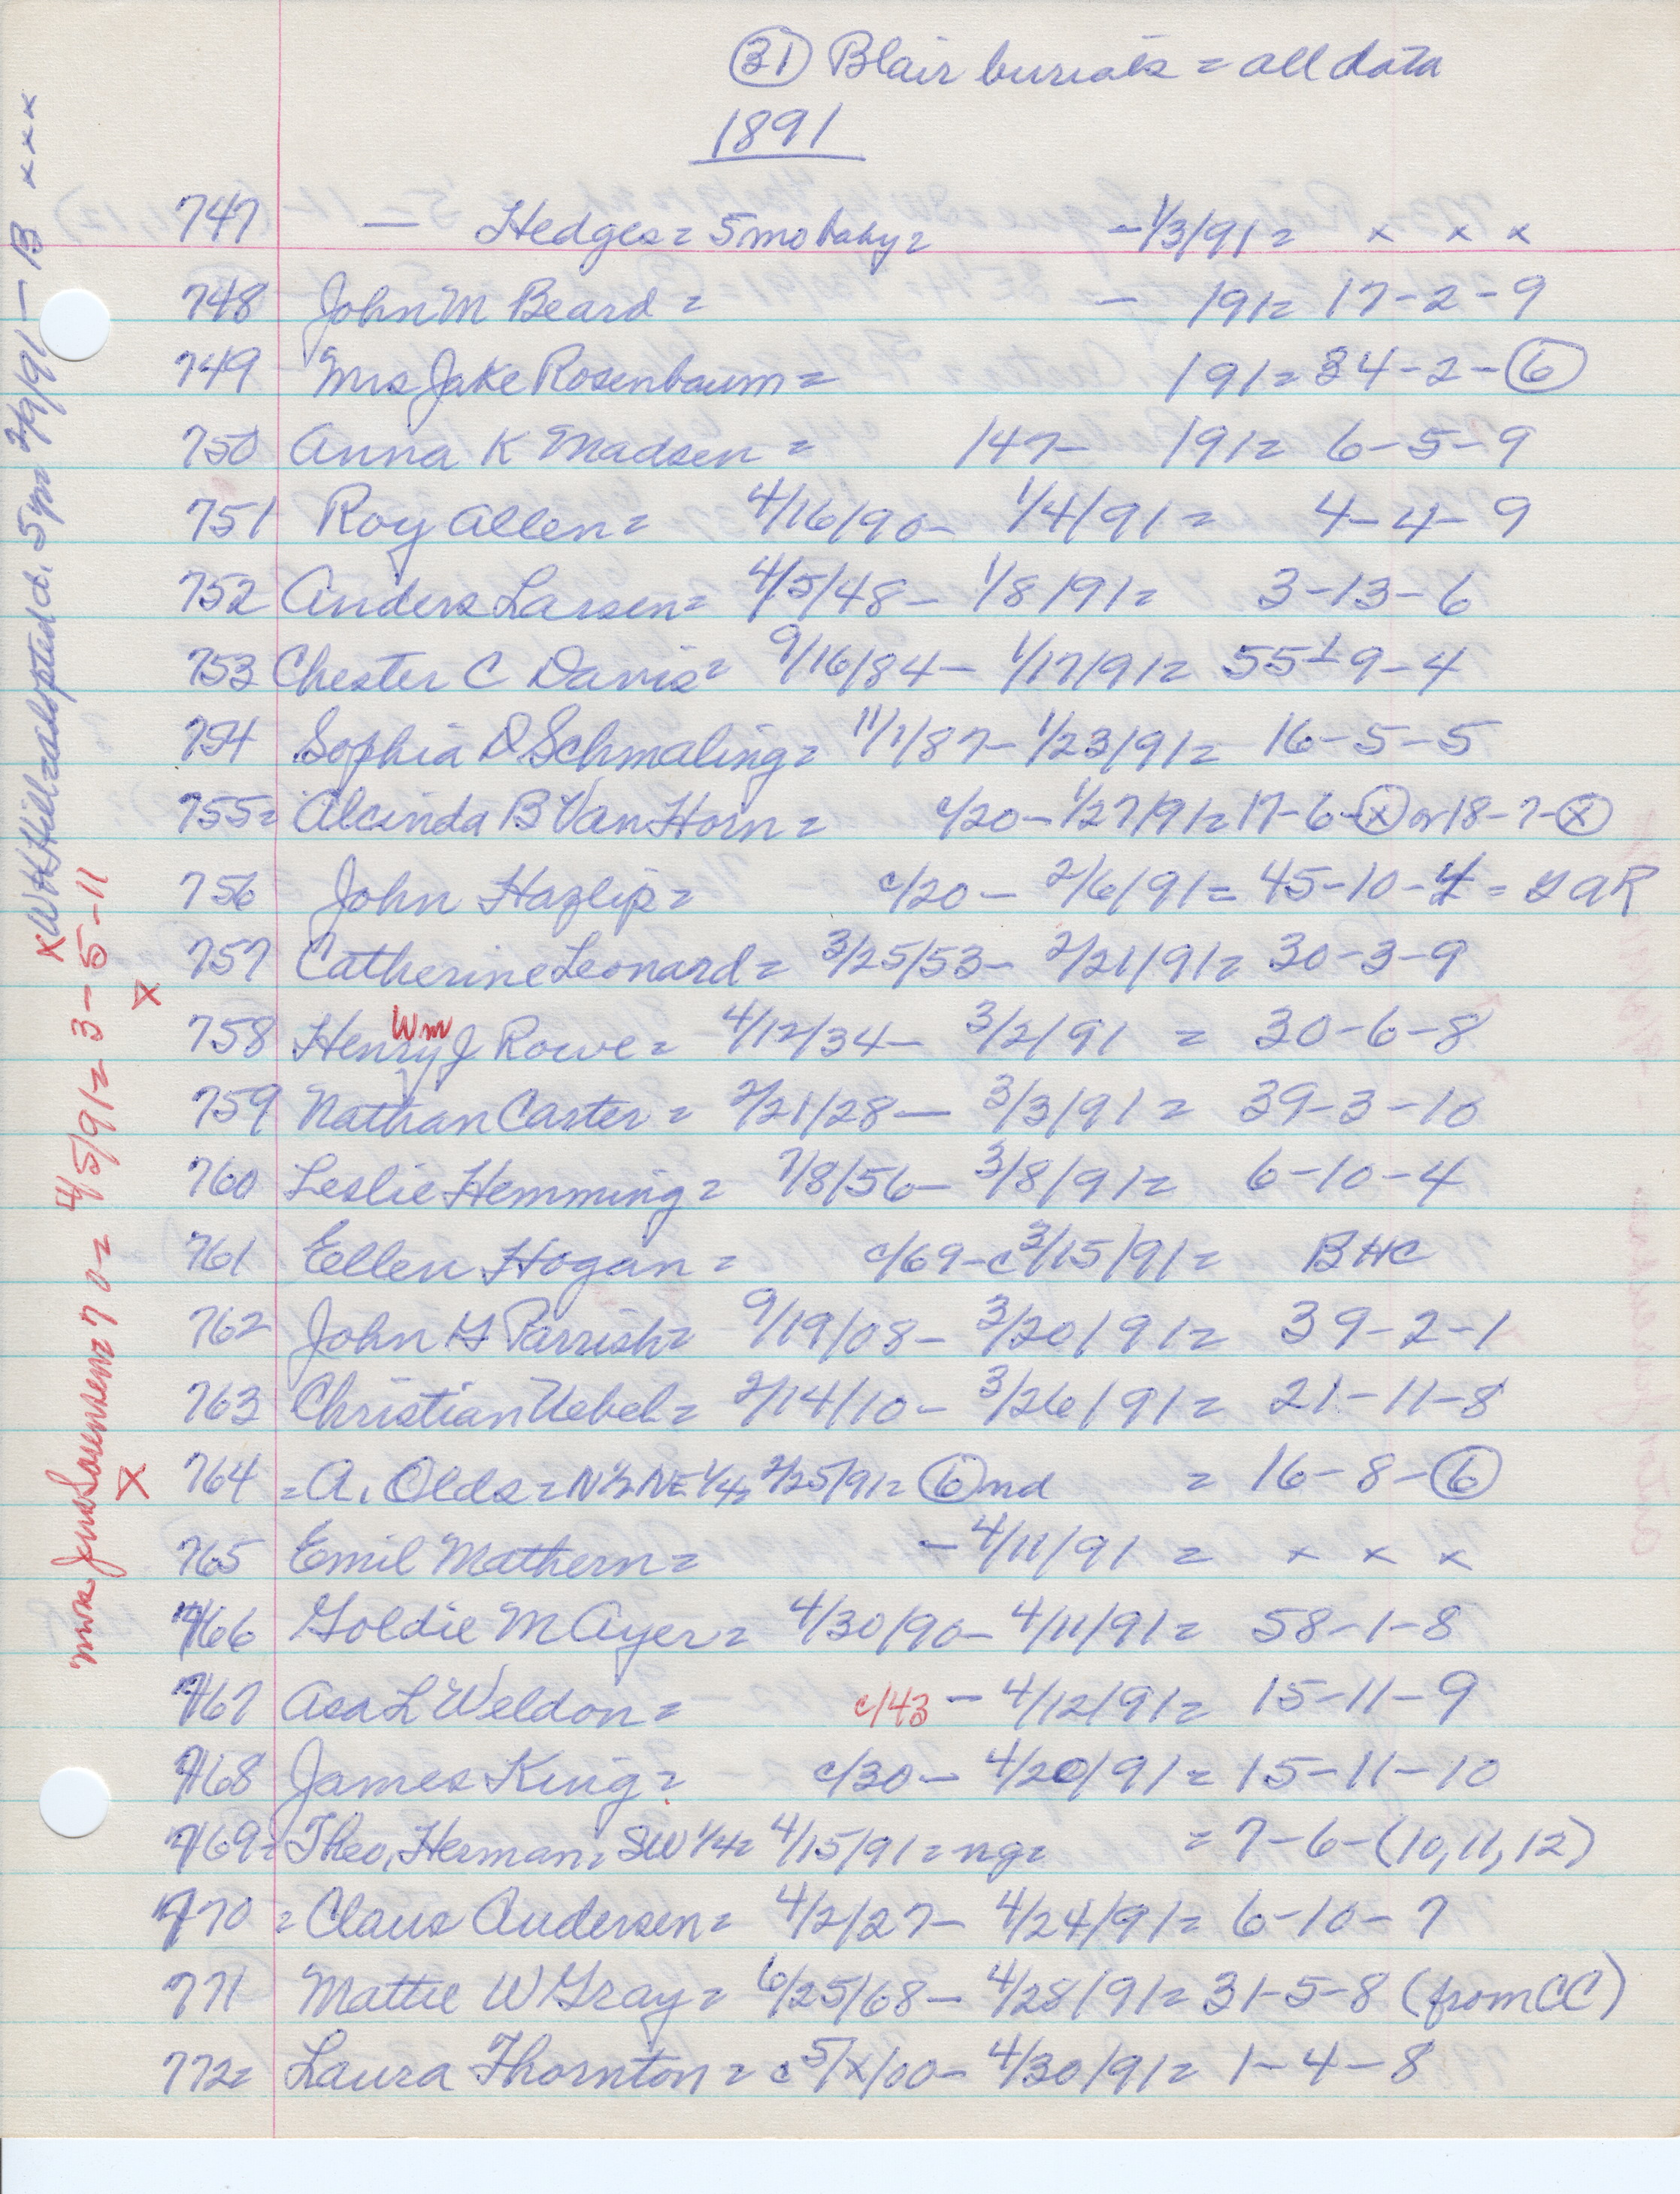 (31) Blair burials = all data
1891
747 — Hedges = 5 mo baby = - 1/3/91 = x x x
748 John M Beard = - /91 = 17-2-9
749 Mrs Jake Rosenbaum = /91 = 34-2-(6)
750 Anna K Madsen = /47- /91 = 6-5-9
751 Roy Allen = 4/16/90- 1/4/91 = 4-4-9
752 Anders Larsen = 4/5/48- 1/8/91 = 3-13-6
753 Chester C Davis = 9/16/84- 1/17/91 = 55-9-4
754 Sophia D Schmaling = 11/1/87- 1/23/91 = 16-5-5
755 = Alcinda B Van Horn = c/20- 1/27/91 = 17-6-(x) or 18-7-(x)
756 John Hazlip = c/20- 2/6/91 = 45-10-4 = GAR
757 Catherine Leonard = 3/25/53- 2/21/91 = 30-3-9
Wm
758 Henry J Rowe = 4/12/34- 3/2/91 = 30-6-8
759 Nathan Carter = 2/21/28- 3/3/91 = 39-3-10
760 Leslie Hemming = 7/8/56- 3/8/91 = 6-10-4
761 Ellen Hogan = c/69-c3/15/91 = BHC
762 John G Parrish = 9/19/08- 3/20/91 = 39-2-1
763 Christian Uebel = 2/14/10- 3/26/91 = 21-11-8
764 = A. Olds = N 1/2 NE 1/4 = 2/25/91 = (6) nd = 16-8-(6)
765 Emil Mathern = - 4/11/91 = x x x
766 Goldie M Ayer = 4/30/90- 4/11/91 = 58-1-8
767 Asa L Weldon = c/43 - 4/12/91 = 15-11-9
768 James King = c/30- 4/20/91 = 15-11-10
769 = Theo. Herman = SW 1/4 = 4/15/91 = ng = = 7-6-(10,11,12)
770 = Claus Andersen = 4/2/27- 4/24/91 = 6-10-7
771 Mattie W Gray = 6/25/68- 4/28/91 = 31-5-8 (from CC)
772 = Laura Thornton = c5/x/00- 4/30/91 = 1-4-8
x WH Hill = adopted d. 5yr 2/9/91 - B x x x
x
Mrs Jens Sorensen 70 = 4/5/91 = 3-5-11
x